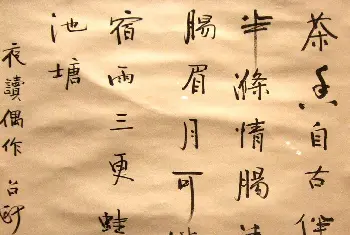 茶香自古伴
半滌情腸
腸眉月可
宿雨三更蛙
池塘
夜讀偶作